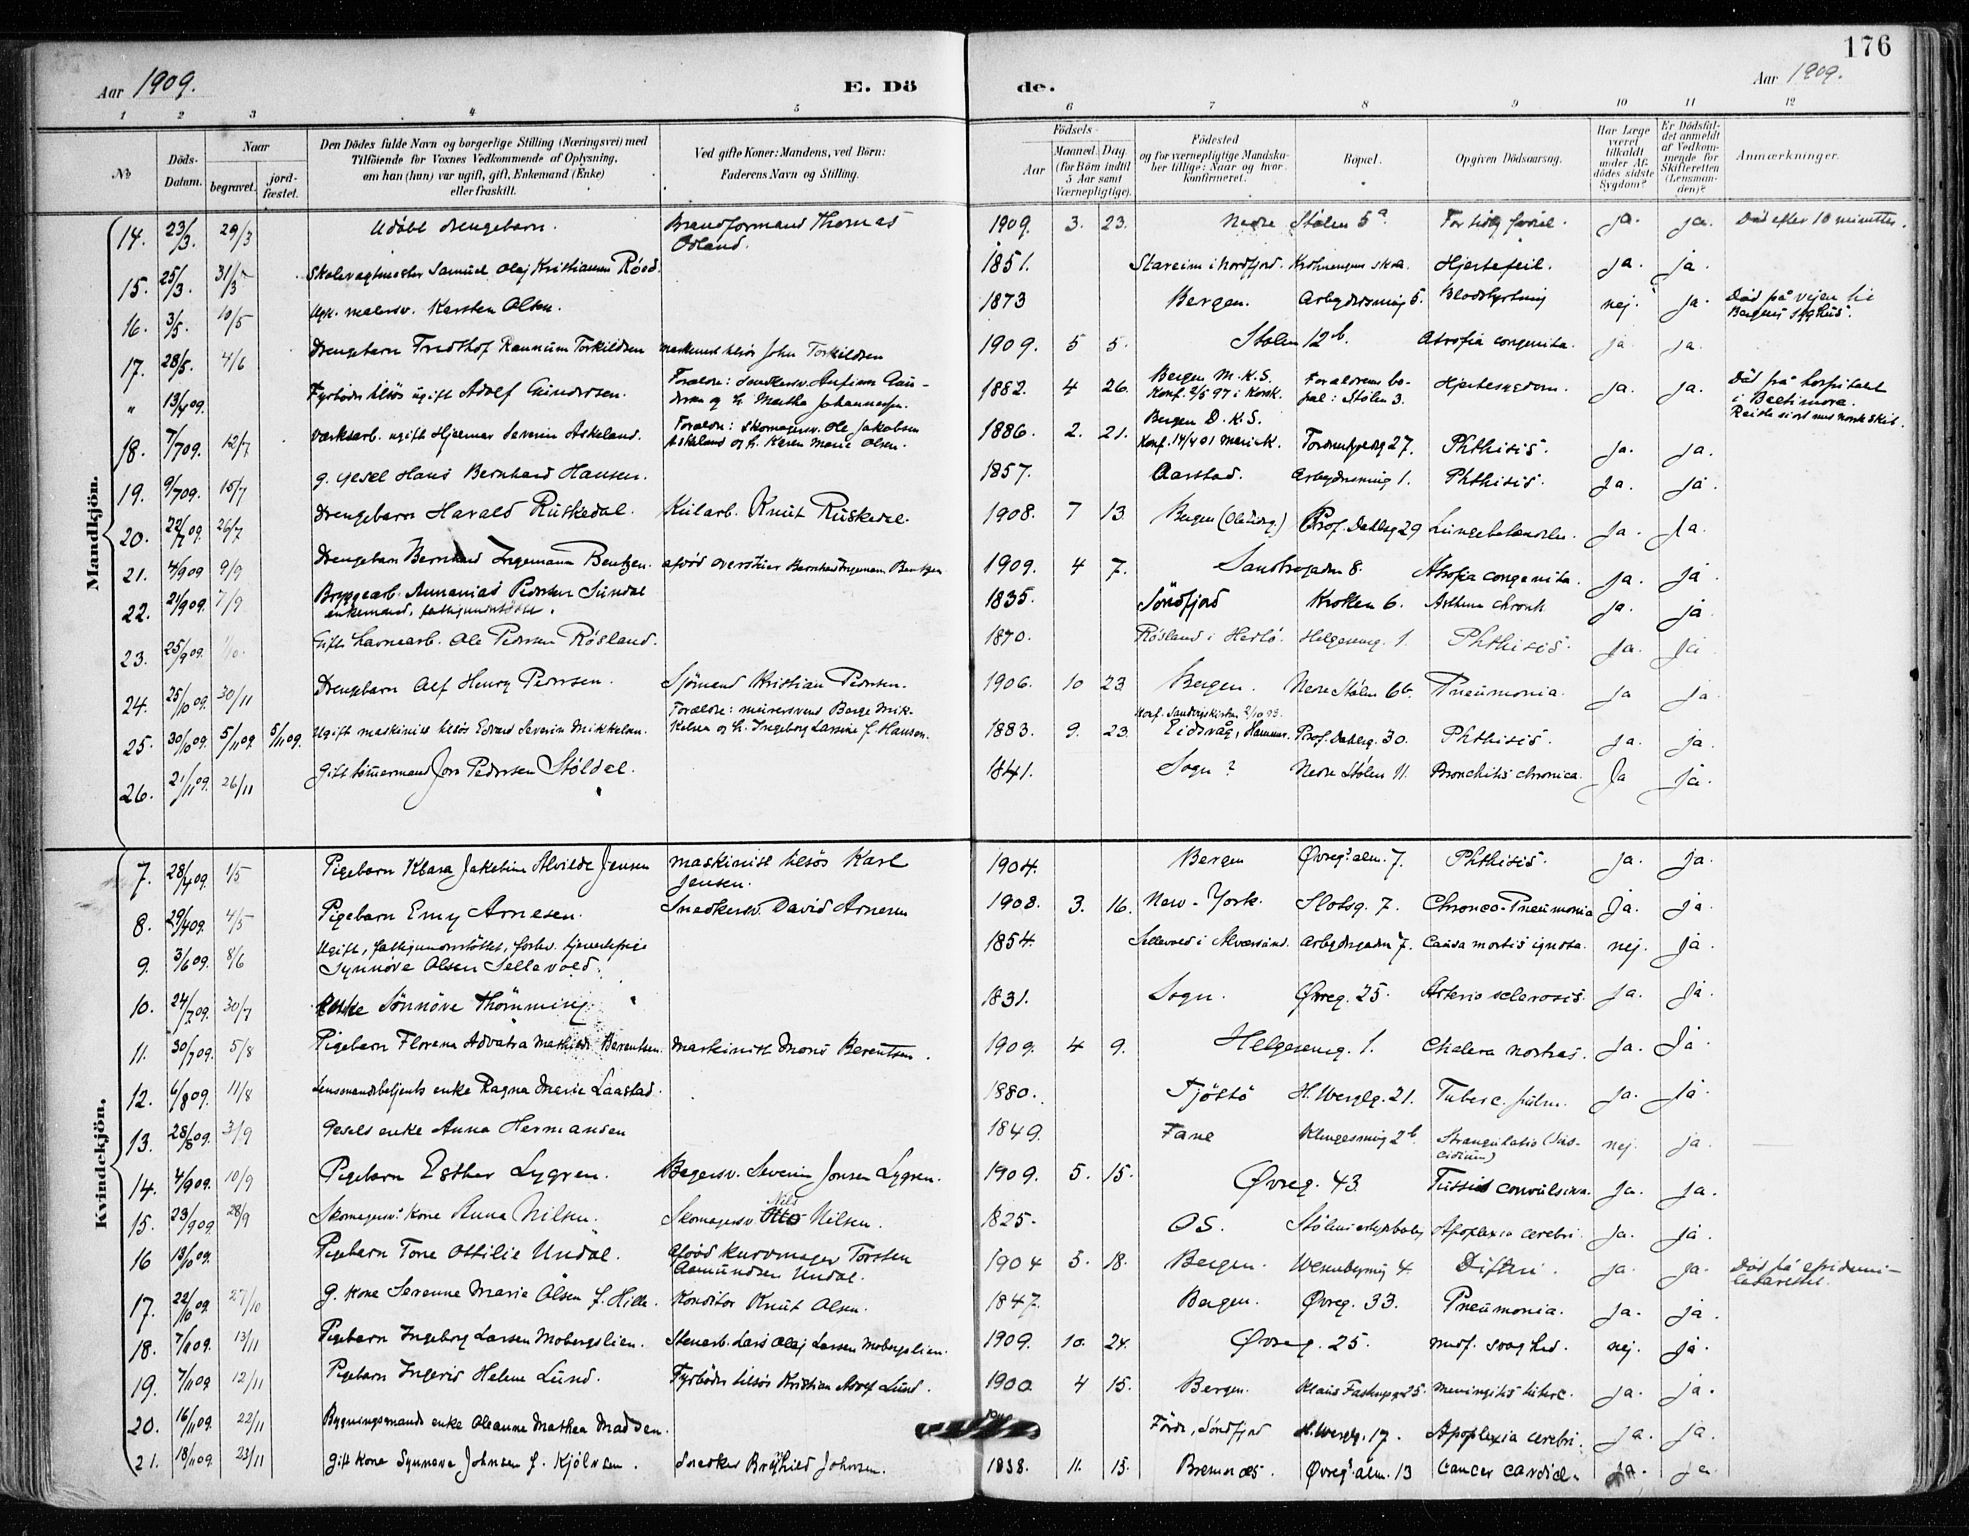 176
Aar 1909.
E. Dö
de.
Aar 1909.
1 2 3 4 5 6 7 8 9 10 11 12
№
Döds-Datum.
Naar
begravet.
jord-fæstet.
Den Dödes fulde Navn og borgerlige Stilling (Næringsvei) med
Tilföiende for Voxnes Vedkommende af Oplysning,
om han (hun) var ugift, gift, Enkemand (Enke)
eller fraskilt.
Ved gifte Koner: Mandens, ved Börn:
Faderens Navn og Stilling.
Födsels-
Aar
Maaned. Dag
(for Börn indtil
5 Aar samt
Værnepligtige).
Födested
og for værnepligtige Mandska-
ber tillige: Naar og hvor
konfirmeret.
Bopæl.
Opgiven Dödsaarsag.
Har Læge
været
tilkaldt
under Af-
dödes sidste
Sygdom?
Er Dödsfal-
det anmeldt
af Vedkom-
mende for
Skifteretten
(Lensman-
den)?
Anmærkninger.
Mandkjön.
14. 23/3. 29/3 Udöbt drengebarn. Brandformand Thomas Odland. 1909. 3. 23. Nedre Stölen 5a For tidlig födsel. ja. ja. Död efter 10 minutter.
15. 25/3. 31/3 Skolevagtmester Samuel Olaj Kristiansen Röod. 1851. Stareim i Nordfjord. Hjertefeil. ja. ja.
16. 3/5. 10/5 Ugk. malersv. Karsten Olsen. 1873 Bergen. 5. Blodstyrtning nej. ja. Död på vejen til Bergens syghus.
17. 28/5. 4/6 Drengebarn Fredthof Rannum Torkildsen John Torkildsen 1909. 5 5. Stölen 12b. Atrofia congenita. ja ja.
" 13/4 09. Fyrböder ugift Adolf Gundersen. Forældre: 1882. 4 26. Bergen M.K.S. Konf. 2/5 97 i Korsk. Forældrenes bopæl: Stölen 3. Hjertesygdom. ja. ja. Död på hospitalet i Baltimora. Reiste sidst med norsk skib.
18. 7/7 09. 12/7 Værksarb. ugift Hjalmar Severin Askeland. Forældre: Skomagersv. Ole Jakobsen Askeland og h. Karen Marie Olsen. 1886. 2. 21. Bergen D.K.S. Konf. 14/4 01 Mariek. 27. Phthisis. ja. ja.
19. 9/7 09. 15/7 g. gesel Hans Bernhard Hansen. 1857. Aarstad. 1. Phthisis. Ja. ja.
20. 22/7 09. 26/7 Drengebarn Harald Rüskedal. KulArb. Knut Rüskedal. 1908. 7 13 Bergen Prof. Dahlsg 29 Lungebetændelse. Ja. Ja.
21. 4/9 09 9/9 Drengebarn Bernhard Ingemann Bentzen. Bernhard Ingemann Bentzen 1909. 4 7. 8. Atrofia congenita. ja. ja.
22. 2/9 09. 7/9 Bryggearb. Annanias Pedersen Sundal enkemand, fattigunderstöttet. 1835. Söndfjord Krohen 6. Asthma chronk ja. ja.
23. 25/9 09. 1/10. Gift havnearb. Ole Pedersen Rösland. 1870. Rösland i Herlö. Helgesensg. 1. Phthisis. Ja. ja
24. 25/10 09. 30/11 Drengebarn Alf Henry Pedersen. Sjömand Kristian Pedersen. 1906. 10 23 Bergen. Nedre Stölen 6b. Pneumonia. ja ja.
25. 30/10 09. 5/11 09. 5/11 09. Ugift maskinist Edvard Severin Mikkelsen. Forældre: murersvend Børge Mikkelsen og h. Ingeborg Larsine f. Hansen. 1883. 9. 23. Konf. Sandvigskirken 2/10 98. Eidsvåg, Hammer. Prof. Dahlsg. 30. Phthisis. ja. ja.
26. 21/11 09. 26/11 Gift tömmermand Jon Pedersen Stöldal. 1841. Sogn? Nedre Stölen 11. Bronchitis chronica. Ja ja.
Kvindekjön.
7. 28/4 09. 1/5 Pigebarn Klara Jakobine Alvilde Jensen maskinist Karl Jensen. 1904. Bergen Øvregs alm. 7. Phthisis. ja. ja.
8. 29/4 09. 4/5 Pigebarn Emy Arnesen. Snedkersv. David Arnesen 1908. 3. 16. New-York. Slotsg. 7. Chronco-Pneumonia Ja. ja.
9. 3/6 09. 8/6 Ugift, fattigunderstöttet, forhv. tjenestepige Synnöve Olsen Sellevold. 1854. Sellevold i Alversund. 7. Causa mortis ignota. nej. ja.
10. 24/7 09. 30/7 Enke Sönnöve Thömming. 1831. Sogn. Øvreg. 25. Arterio sclerosis. ja. ja.
11. 30/7 09. 5/8 Pigebarn Florena Advatra Mathilde Berentsen. Maskinist Mons Berentsen. 1909. 4 9. Helgesensg. 1. Cholera nostras. ja. Ja.
12. 6/8 09. 11/8 Lensmandsbetjents enke Ragna Marie Laastad. 1880. Tjöttö H. Wergelg. 21. Tuberc. pulm. ja. ja.
13. 28/8 09. 3/9 Gesels enke Anna Hermansen 1849. Fane Klingesmug 2b. Strangulatio (Suicidium) nej. ja.
14. 4/9 09. 10/9 Pigebarn Esther Lygren. Bagersv. Severin Jonsen Lygren. 1909. 5. 15. Øvreg. 43. Tussis convulsiva. Ja. ja.
15. 23/9 09. 28/9 Skomagersv. kone Anna Nilsen. Skomagersv. Otto Nils Nilsen. 1825. OS. Apoplexia cerebri. ja. ja.
16 13/10 09. Pigebarn Tone Ottilie Undal. afdöd kurvmager Torsten Aamundsen Undal. 1904 5. 18. Bergen. 4. Difteri. ja. ja. Död på epidemilasarettet.
17. 22/10 09. 27/10 g. kone Serenne Maria Olsen f. Hille. Konditor Knut Olsen. 1847. Bergen. Øvreg. 33. Pneumonia. ja. ja.
18. 7/11 09. 13/11 Pigebarn Ingeborg Larsen Mobergslien. Stenarb. Lars Olaj Larsen Mobergslien. 1909. 10. 24. Øvreg. 25. medf. svaghed. nej. ja.
19. 7/11 09. 12/11 Pigebarn Ingerid Helene Lund. Fyrböder Kristian Adolf Lund. 1900. 4 15. Bergen. 25. Meningitis tuberc. ja. ja.
20. 16/11 09. 22/11 Bygningsmands enke Oleanne Mathea Madsen. Förde, Söndfjord H. Wergelg. 17. Apoplexia cerebri. ja. ja.
21. 18/11 09. 23/11 gift kone Synneve Johnsen f. Kjölsen. Snedker Johnsen. 1838. 11. 15. Bremnæs. Øvregs alm. 13 Cancer cardiæ. ja. ja.